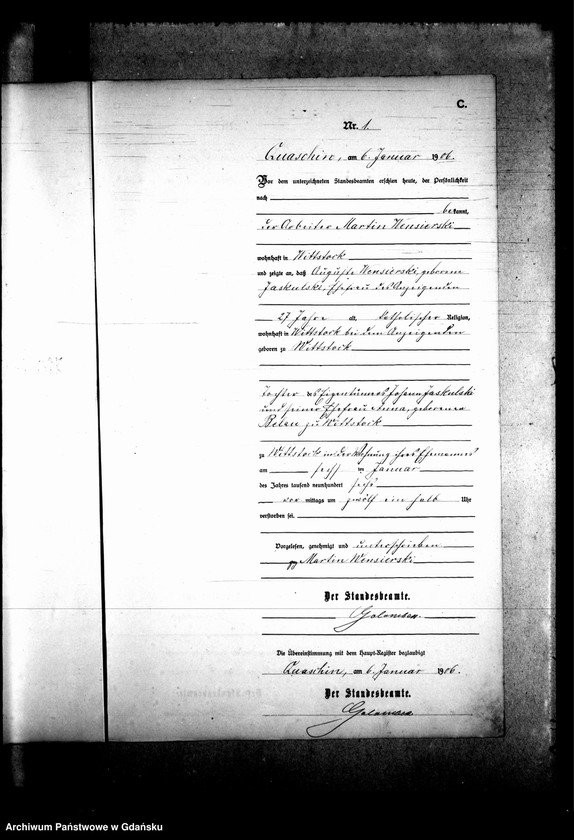 C.
Nr. 1.
Quaschin, am 6. Januar 1906.
Vor dem unterzeichneten Standesbeamten erschien heute, der Persönlichkeit
nach
bekannt,
der Arbeiter Martin Wensierski
wohnhaft in Wittstock
und zeigte an, daß Auguste Wensierski, geborene
Jaskulski, Ehefrau des Anzeigenden
27 Jahre alt, katholischer Religion,
wohnhaft in Wittstock bei dem Anzeigenden
geboren zu Wittstock
Tochter des Eigentümers Johann Jaskulski
und seiner Ehefrau Anna, geborene
zu Wittstock
zu Wittstock in der Wohnung ihres Ehemannes
am sechs im Januar
des Jahres tausend neunhundert sechs
vor mittags um zwölf ein halb Uhr
verstorben sei.
Vorgelesen, genehmigt und unterschrieben
Martin Wensierski
Der Standesbeamte.
Die Übereinstimmung mit dem Haupt-Register beglaubigt
Quaschin, am 6. Januar 1906.
Der Standesbeamte.
Archiwum Państwowe w Gdańsku